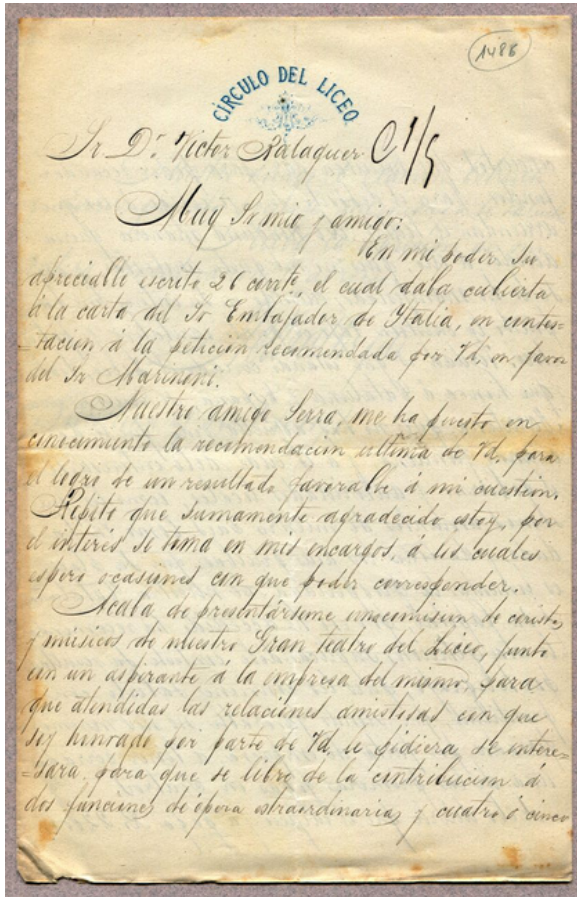 1486
CÍRCULO DEL LICEO
Sr Dn Victor Balaguer C 1/5
Muy Sr mio y amigo:
En mi poder su
apreciable escrito 26 corrte, el cual daba cubierta
á la carta del Sr Embajador de Italia, en contes-
=tacion á la peticion recomendada por Vd, en favor
del Sr Marinoni.
Nuestro amigo Serra, me ha puesto en
conocimiento la recomendacion ultima de Vd, para
el logro de un resultado favorable á mi cuestion.
Repito que sumamente agradecido estoy, por
el interés se toma en mis encargos, á los cuales
espero ocasiones con que poder corresponder.
Acaba de presentárseme una comision de coristas
y músicos de nuestro Gran Teatro del Liceo, junto
con un aspirante á la empresa del mismo, para
que atendidas las relaciones amistosas con que
soy honrado por parte de Vd, le pidiera se intere=
=sara, para que se libre de la contribucion á
dos funciones de ópera estraordinarias y cuatro ó cinco